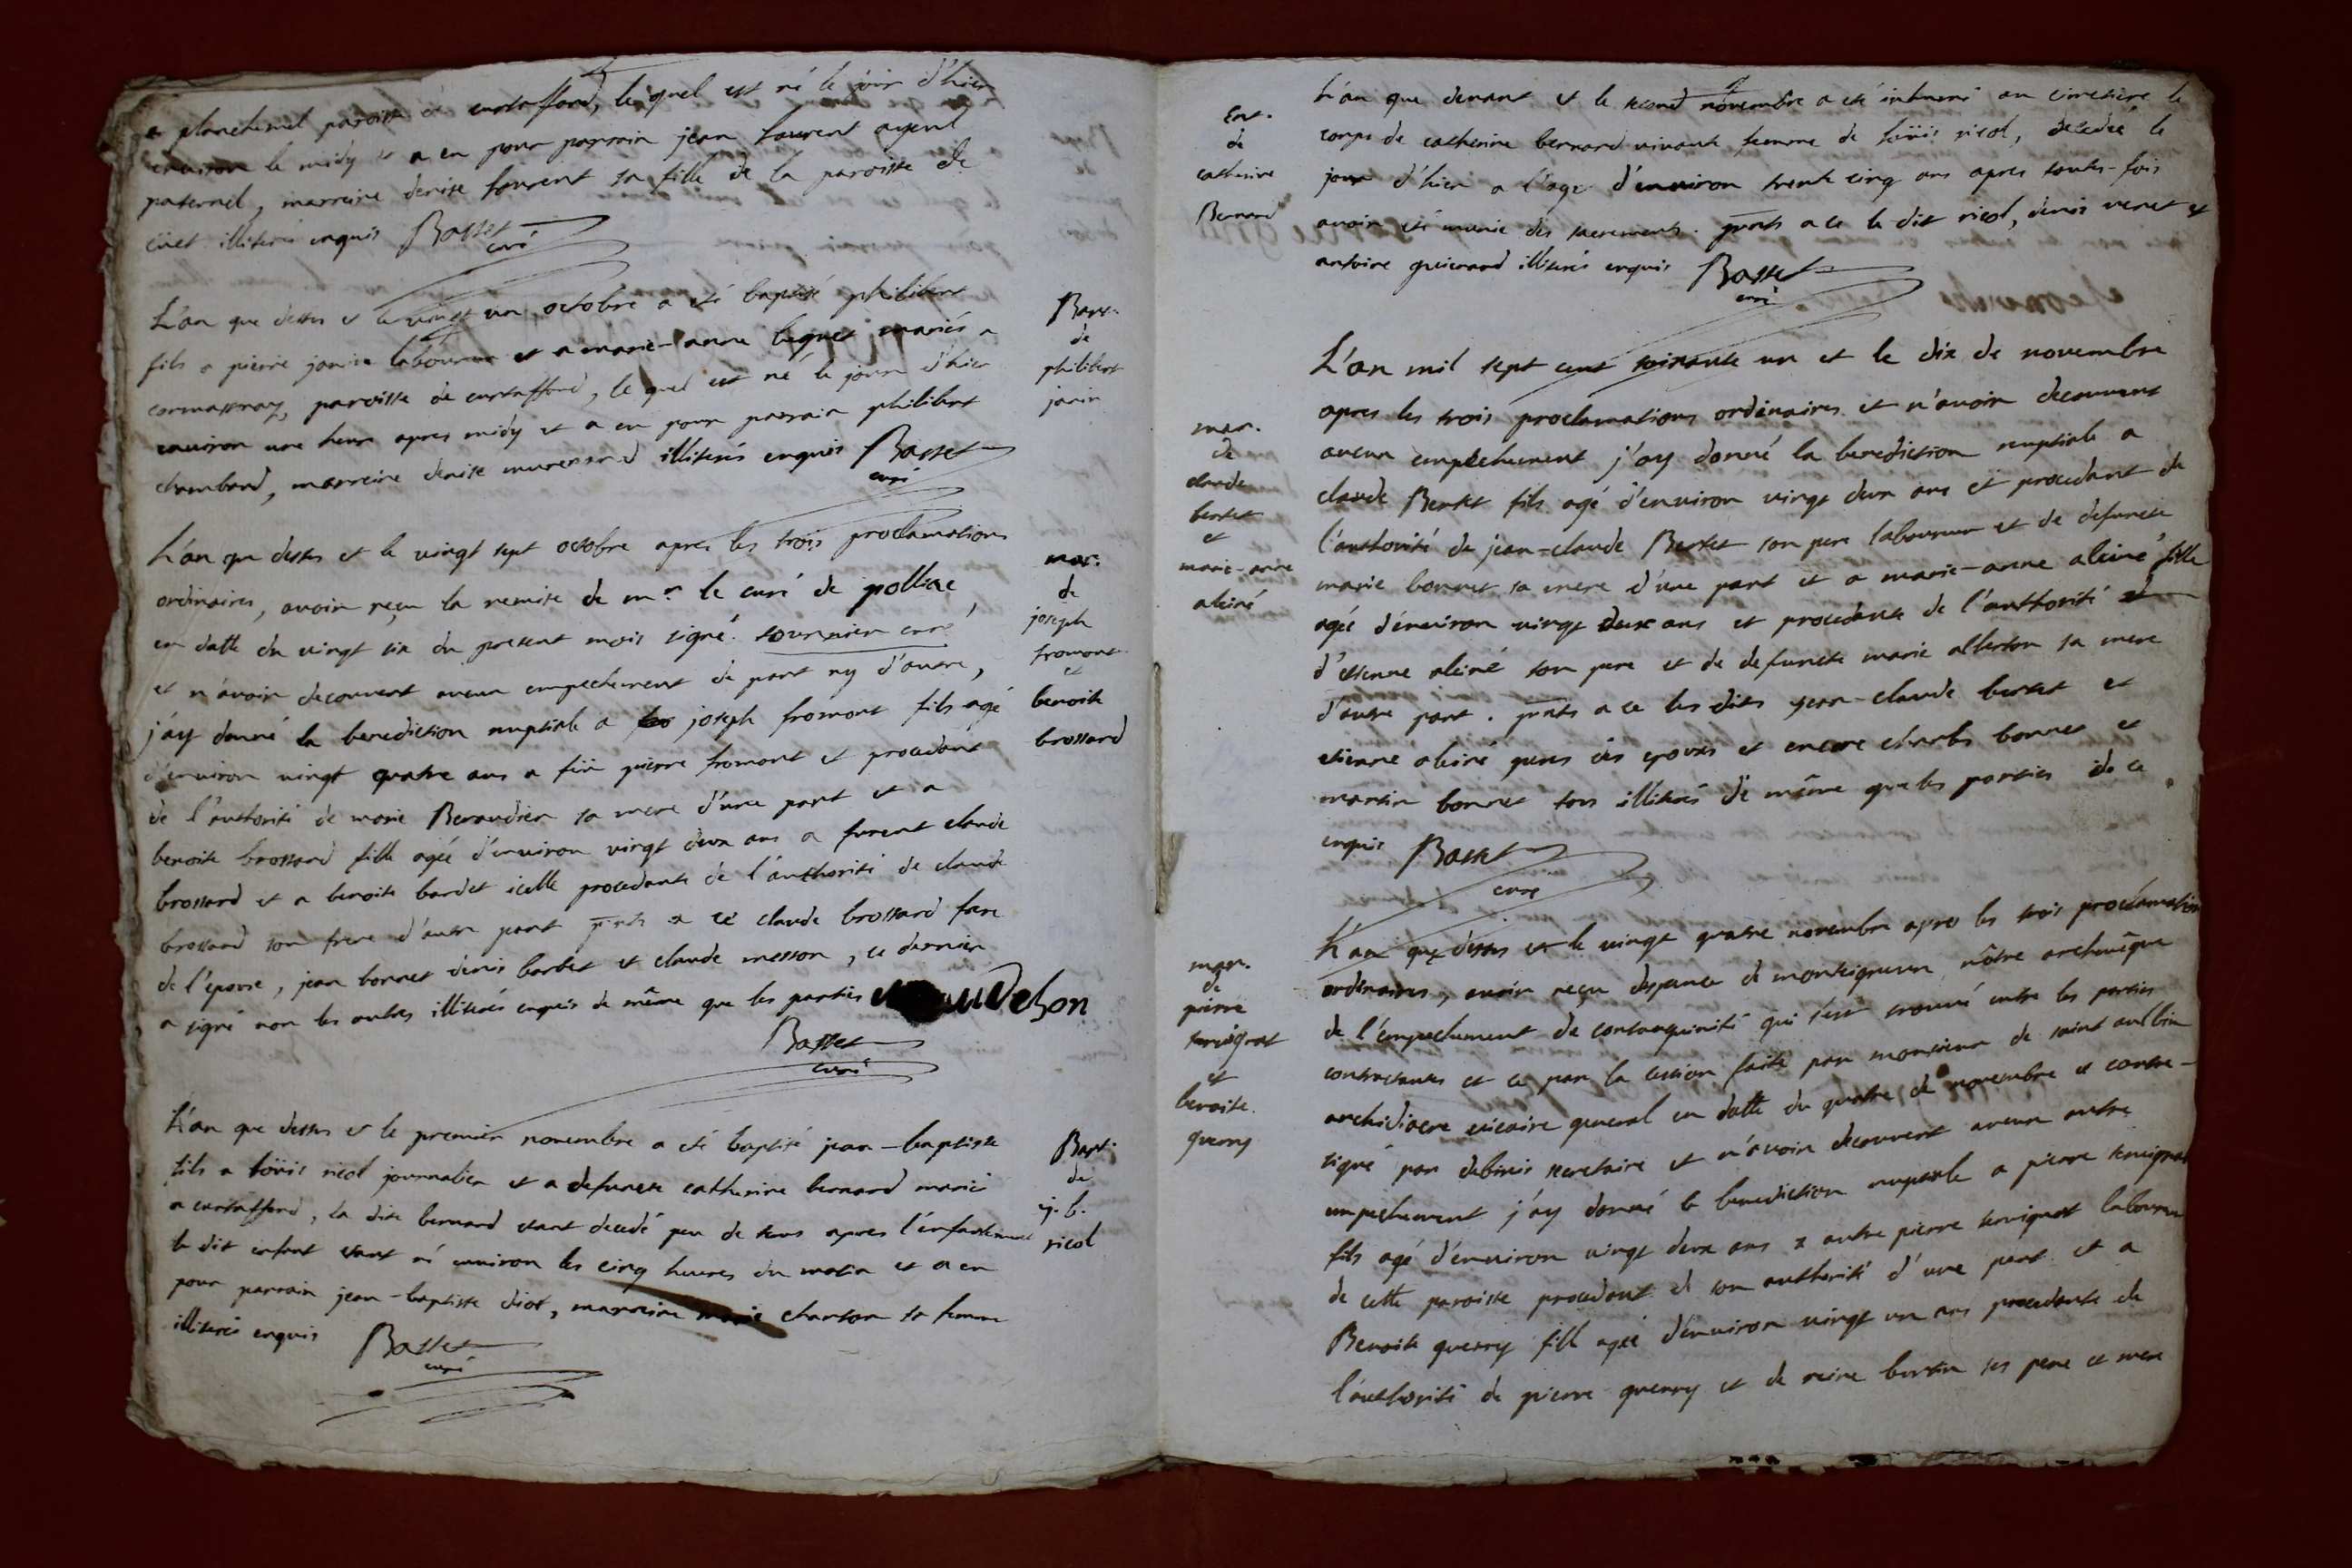 a planchenel paroisse de curtaffond, le quel est né le jour d'hier
environ le midy et a eu pour parrain jean laurent ayeul
paternel, marreine denise laurent sa fille de la paroisse de
cüet illiterés enquis Basset
curé
L'an que dessus et le vingt un octobre a été baptisé philibert
fils a pierre janin laboureur et a marie-anne mariés a
cormassnay, paroisse de curtaffond, le quel est né le jour d'hier
environ une heure apres midy et a eu pour parrain philibert
chambard, marreine denise illiterés enquis Basset
curé
Bapt.
de
philibert
janin
L'an que dessus et le vingt sept octobre apres les trois proclamations
ordinaires, avoir reçu la remise de mr. le curé de polliac
en datte du vingt six du present mois signé. tournier curé
et n'avoir decouvert aucun empechement de part ny d'autre,
j'ay donné la benediction nuptiale a joseph fromont fils agé
d'environ vingt quatre ans a feü pierre fromont et procedant
de l'authorité de marie Beraudier sa mere d'une part et a
benoite brossard fille ageé d'environ vingt deux ans a furent claude
brossard et a benoite bardet icelle procedante de l'authorité de claude
brossard son frere d'autre part prnts a ce claude brossard frere
de l'epouse, jean bonnet denis barbet et claude messon, ce dernier
a signé non les autres illiterés enquis de même que les parties
Basset
curé
mar.
de
joseph
fromont
et
benoite
brossard
L'an que dessus et le premier novembre a été baptisé jean-baptiste
fils a loüis nicol journalier et a defuncte catherine bernard mariés
a curtaffond, la dite bernard etant decedé peu de tems apres l'enfantement
le dit enfant etant né environ les cinq heures du matin et a eu
pour parrain jean-baptiste diot, marreine marie chanson sa femme
illiterés enquis Basset
curé
Bapt.
de
j. b.
nicol
Ent.
de
catherine
Bernard
L'an que devant et le second novembre a été inhumé au cimetière le
corps de catherine bernard vivante femme de loüis nicol, decedeé le
jour d'hier a l'age d'environ trente cinq ans apres toutes-fois
avoir été munie des sacrements. prnts a ce le dit nicol, denis venet et
antoine guicnard illiterés enquis Basset
curé
mar.
de
claude
bertet
et
marie-anne
aleiné
L'an mil sept cent soixante un et le dix de novembre
apres les trois proclamations ordinaires et n'avoir decouvert
aucun empêchement j'ay donné la benediction nuptiale a
claude Bertet fils agé d'environ vingt deux ans et procedant de
l'authorité de jean-claude Bertet son pere laboureur et de defuncte
marie bonnet sa mere d'une part et a marie-anne aleiné fille
ageé d'environ vingt deux ans et procedante de l'authorité
d'etienne aleiné son pere et de defuncte marie sa mere
d'autre part. prnts a ce les dits jean-claude bertet et
etienne aleiné peres des epoux et encore charles bonnet et
martin bonnet tous illiterés de même que les parties de ce
enquis Basset
curé
mar.
de
pierre
tervignat
et
benoite
guerry
L'an que dessus et le vingt quatre novembre apres les trois proclamations
ordinaires, avoir reçu dispance de monseigneur nôtre archevêque
de l'empechement de consanguinité qui s'est trouvé entre les parties
contractantes et ce par la cession faite par monsieur de saint aulbin
archidiacre vicaire general en datte du quatre de novembre et contre-
signé par secretaire et n'avoir decouvert aucun autre
empechement j'ay donné la benediction nuptiale a pierre tervignat
fils agé d'environ vingt deux ans a autre pierre tervignat laboureur
de cette paroisse procedant de son authorité d'une part et a
Benoite guerry fille ageé d'environ vingt un ans procedante de
l'authorité de pierre guerry et de reine ses pere et mere